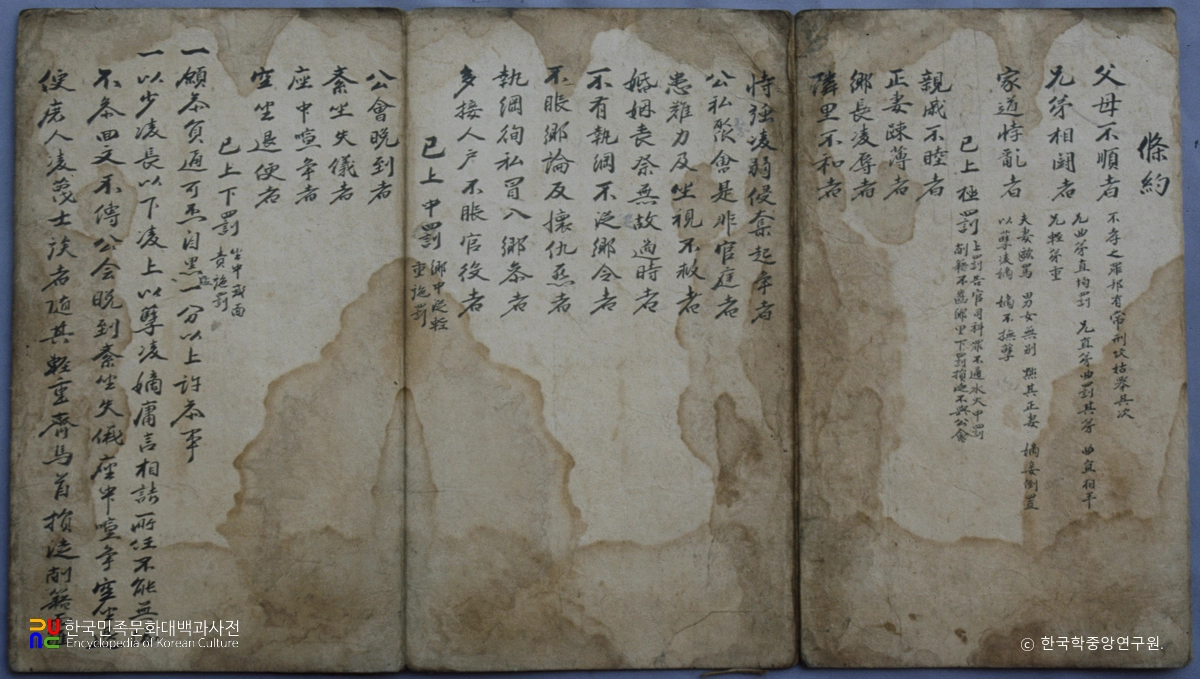 條約
父母不順者 不孝之罪邦有常刑次枯擧其次
兄弟相鬩者 兄曲弟直均罰 兄直弟曲罰其弟 曲直相半
兄輕弟重
家道悖亂者 夫妻敺罵 男女無別 黜其正妻 嫡妾倒置
以孽凌嫡 嫡不撫孽
親戚不睦者
正妻疎薄者
鄕長凌辱者
隣里不和者
已上極罰 上罰告官司科罪不通水火中罰
削籍不齒鄕里下罰損徒不與公會
恃强凌弱侵奪起爭者
公私聚會是非官庭者
患難力及坐視不救者
婚姻喪祭無故過時者
不有執綱不從鄕令者
不服鄕論反懷仇怨者
執綱徇私冒入鄕參者
多接人戶不服官役者
已上中罰 鄕中從輕
重施罰
公會晩到者
紊坐失儀者
座中喧爭者
空坐退便者
已上下罰 坐中或面
責施罰
一願參員 可否 黑一分以上許參事
一以少凌長以下凌上以孽凌嫡庸言相詰所任不能
不參回文不傳公會晩到紊坐失儀座中喧爭空坐
使 人凌蔑士族者隨其輕重齊馬首損徒削籍
한국민족문화대백과사전
Encyclopedia of Korean Culture
© 한국학중앙연구원.